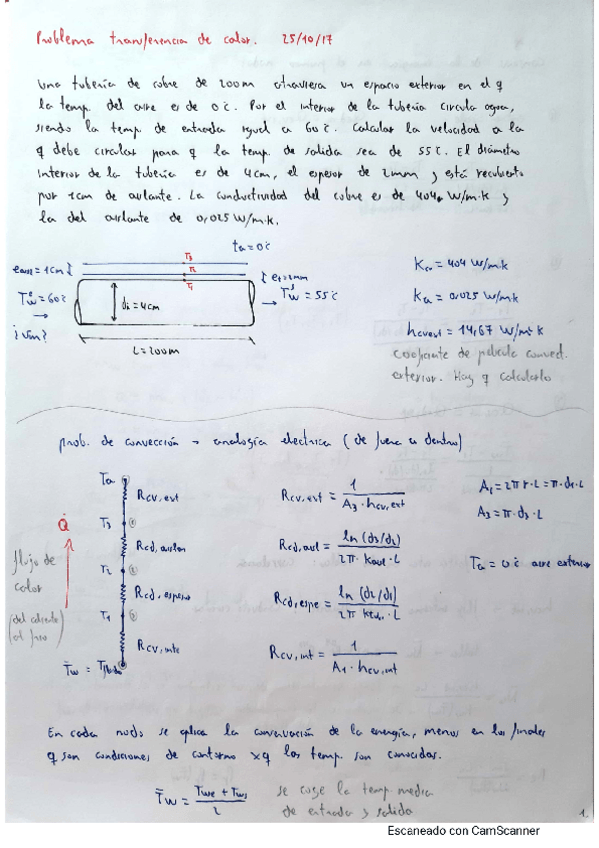 Problema transferencia de calor. 25/10/17
Una tubería de cobre de 200m atraviesa un espacio exterior en el q
la temp. del aire es de 0°C. Por el interior de la tubería circula agua,
siendo la temp. de entrada igual a 60°C. Calcular la velocidad a la
q debe circular para q la temp. de salida sea de 55°C. El diámetro
interior de la tubería es de 4cm, el espesor de 2mm y está recubierto
por 1cm de aislante. La conductividad del cobre es de 404 W/m·K y
la del aislante de 0,025 W/m·K.
ta = 0°C
T3
T2
T1
eaisl = 1cm
et = 2mm
Tw = 60°C
di = 4cm
Tw = 55°C
¿Vm?
L = 200m
Kcu = 404 W/m·K
Ka = 0,025 W/m·K
hcvext = 14,67 W/m²·K
coeficiente de película convect.
exterior. Hay q calcularlo
prob. de convección → analogía eléctrica (de fuera a dentro)
Ta
Rcv,ext
T3
Rcd,aislan
T2
Rcd,espesor
T1
Rcv,inte
T̄w = Tfluido
Q̇
flujo de
calor
(del caliente
al frío)
Rcv,ext = 1 / A3·hcv,ext
Rcd,aisl = ln (d3/d2) / 2π·Kaisl·L
Rcd,espe = ln (d2/d1) / 2π Kcu·L
Rcv,int = 1 / A1·hcv,int
A1 = 2π r·L = π·d1·L
A3 = π·d3·L
Ta = 0°C aire exterior
En cada nodo se aplica la conservación de la energía, menos en los finales
q son condiciones de contorno xq las temp. son conocidas.
T̄w = Twe + Tws / 2
se coge la temp media
de entrada y salida
1
Escaneado con CamScanner